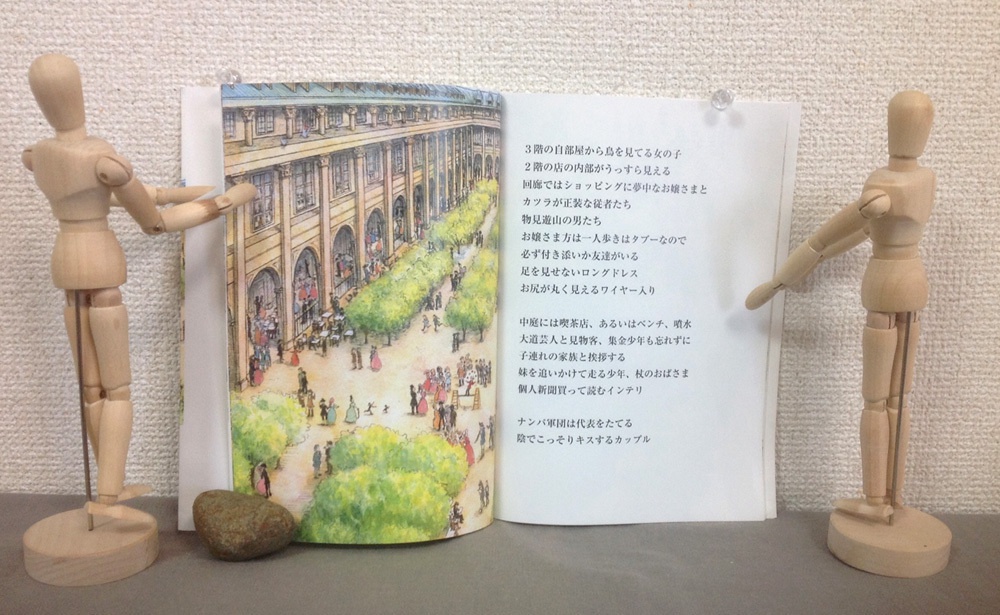 3階の自部屋から鳥を見てる女の子
2階の店の内部がうっすら見える
回廊ではショッピングに夢中なお嬢さまと
カツラが正装な従者たち
物見遊山の男たち
お嬢さま方は一人歩きはタブーなので
必ず付き添いか友達がいる
足を見せないロングドレス
お尻が丸く見えるワイヤー入り
中庭には喫茶店、あるいはベンチ、噴水
大道芸人と見物客、集金少年も忘れずに
子連れの家族と挨拶する
妹を追いかけて走る少年、杖のおばさま
個人新聞買って読むインテリ
ナンパ軍団は代表をたてる
陰でこっそりキスするカップル